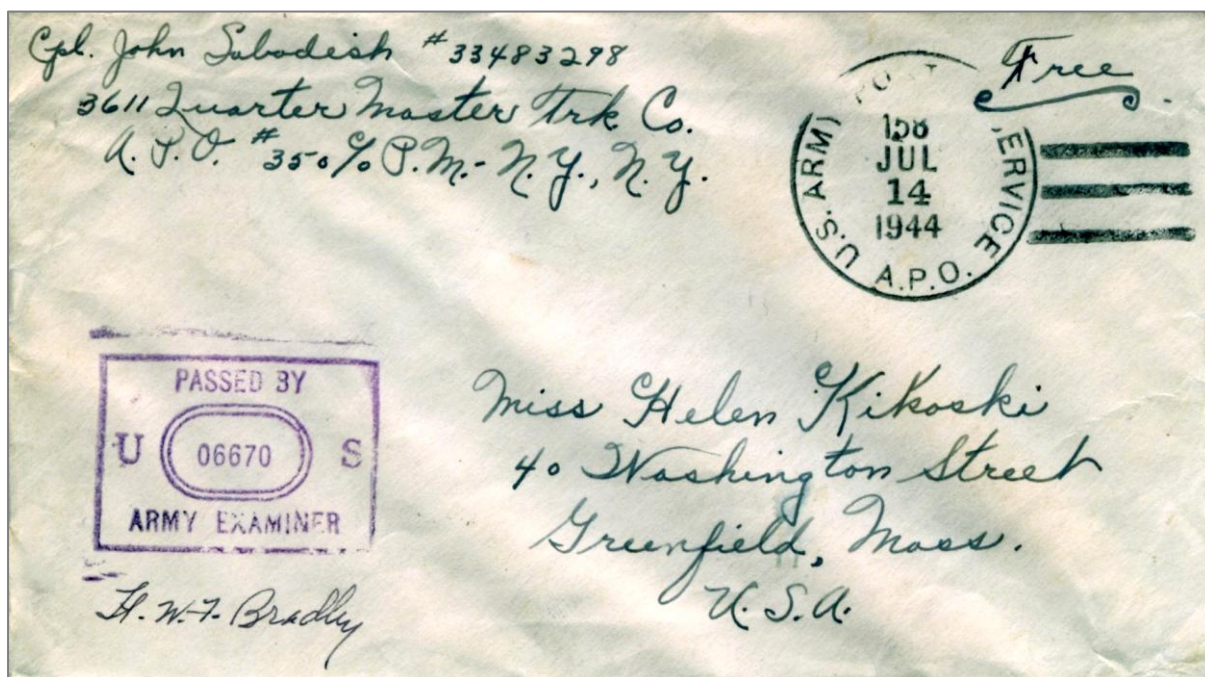 Cpl. John Sabadish #33483298
3611 Quarter Master Trk Co.
A.P.O. #350 % P.M. - N.Y., N.Y.
Free
U.S. ARMY POST SERVICE
158
JUL
14
1944
A.P.O.
PASSED BY
U 06670 S
ARMY EXAMINER
H. W. F. Bradley
Miss Helen Kikoski
40 Washington Street
Greenfield, Mass.
U.S.A.